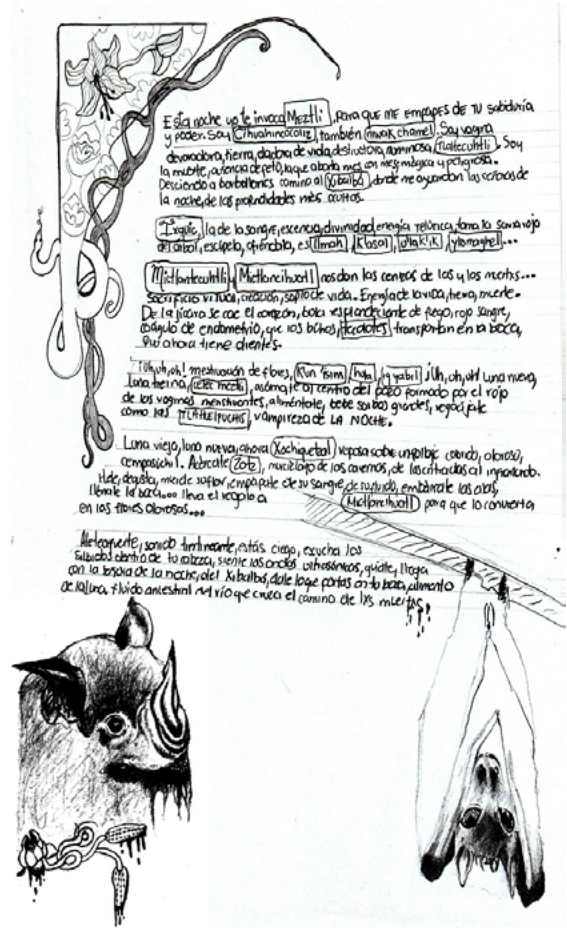 Esta noche yo te invoco Meztli, para que ME EMPAPES DE TU sabiduría
y poder. Soy Cihuahincacoliz, también Soy vagina
devoradora, tierra, dadora de vida, destructora, luminosa, Tlaltecuhtli. Soy
la muerte, la que aborta mes con mes, mágica y peligrosa.
Desciendo a borbollones camino al Xibalbá, donde me aguardan los señores de
la noche, de las profundidades más ocultas.
Ixquic, la de la sangre, escencia, divinidad, energía telúrica, toma la savia roja
del árbol, escúpela, ofréndala, es Ilmah, K'asal, ylomaghel...
Mictlantecuhtli y Mictlancihuatl nos dan las centros de los y las muertxs...
Sacrificio creación, soplo de vida. Energía de la vida, tierra, muerte.
De la jícara se cae el corazón, bola resplandeciente de fuego, rojo sangre,
coágulo de endometrio, que los búhos, tecolotes transportan en la boca,
que ahora tiene dientes.
¡Uh, uh, oh! menstruación de flores, hula, ¡Uh, oh, uh! Luna nueva,
luna tierna, asómate al centro del pozo formado por el rojo
de las vaginas menstruantes, aliméntate, bebe sorbos grandes, regocíjate
como las TLAHUELPUCHIS, vampireza de LA NOCHE.
Luna vieja, luna nueva, ahora Xochiquetzal reposa sobre colorido, oloroso,
cempasúchil. Acércate Zotz, murciélago de las cavernos, de las entradas al inframundo.
Huele, degusta, muerde su flor, empápate de su sangre, de su fluido, embárrate las alas,
llénate la boca... lleva el regalo a Mictlancihuatl para que lo convierta
en las flores olorosas...
Aletea fuerte, sonido tintineante, estás ciego, escucha los
silbidos dentro de tu cabeza, siente las ondas ultrasónicas, guíate, llega
con la señora de la noche, del Xibalbá, dale lo que portas en tu boca, alimento
de la luna, fluido ancestral del río que cruza el camino de lxs muertxs